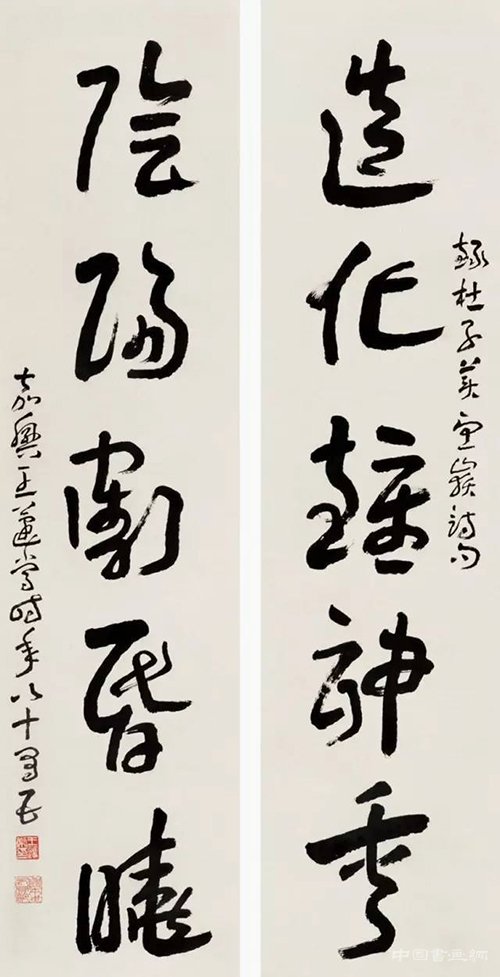 録杜子美望嶽詩句
造化鍾神秀
陰陽割昏曉
嘉興王蘧常時年八十五
中国書画網